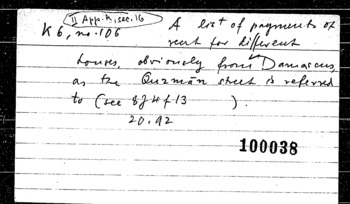 II App. A, sec. 16
K 6, no. 106
A list of payments of
rent for different
houses, obviously from Damascus,
as the Quzmān street is referred
to (see 8J4f13 ).
20.92
100038